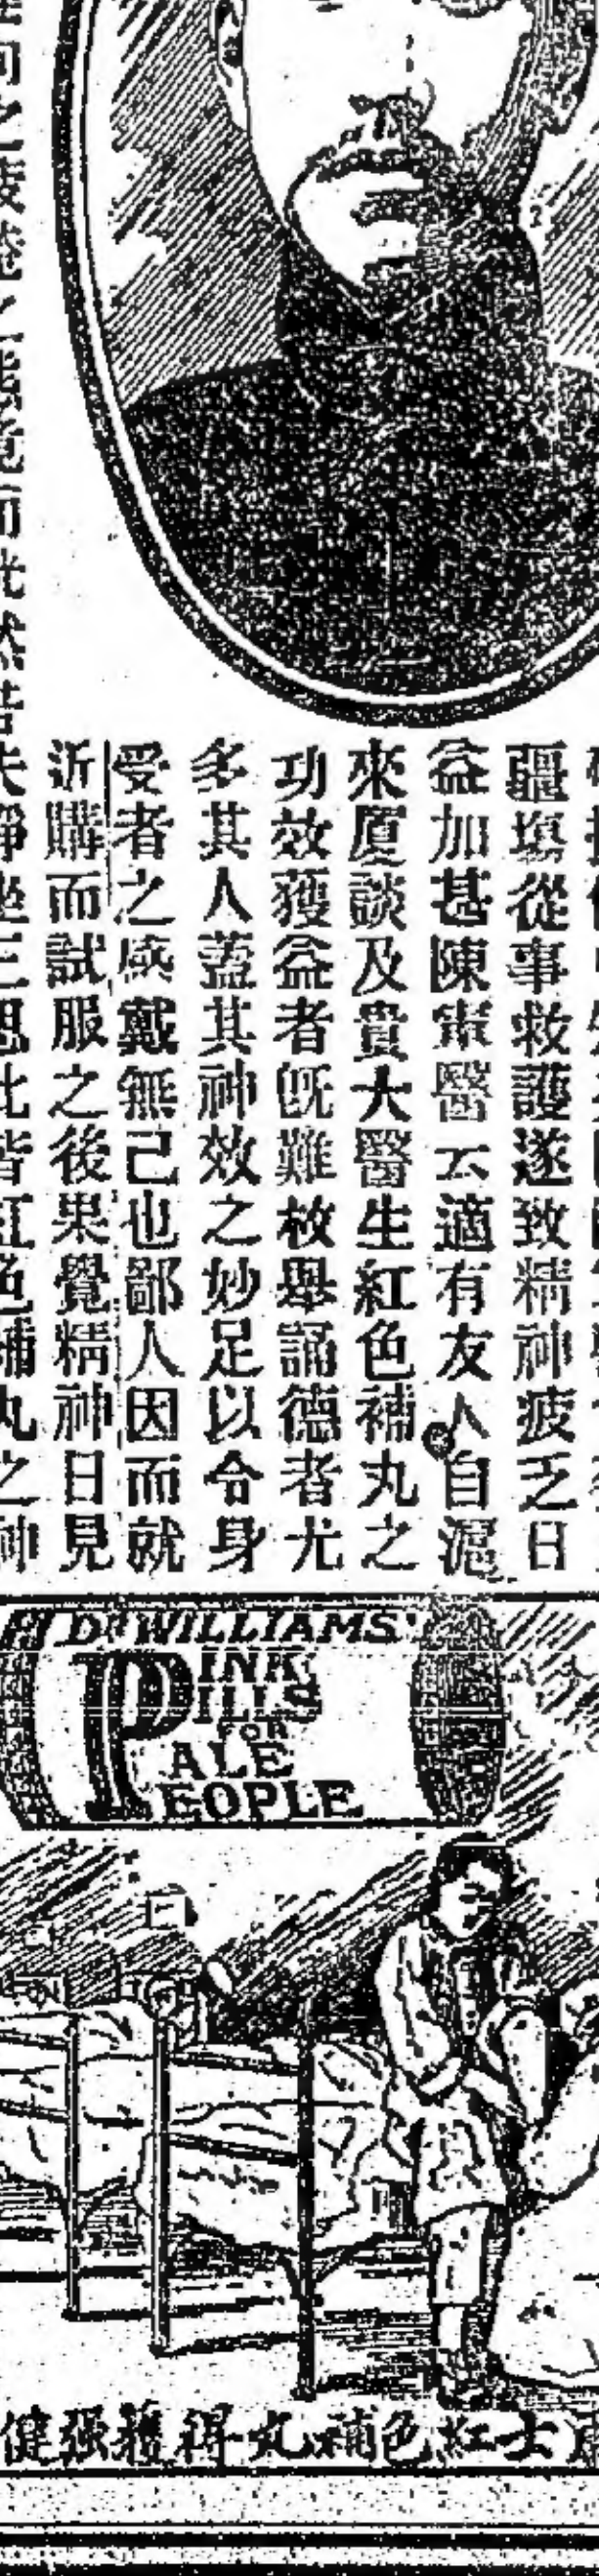 疆塲從事救護遂致精神疲乏日
益加甚陳軍醫云適有友人自滬
來厦談及貴大醫生紅色補丸之
功效獲益者旣難枚舉誦德者尤
多其人蓋其神效之妙足以令身
受者之感戴無己也鄙人因而就
近購而試服之後果覺精神日見
靜坐三思此皆紅色補丸之神
DR WILLIAMS'
PINK
PILLS
FOR
PALE
PEOPLE
士紅色補丸得獲强健